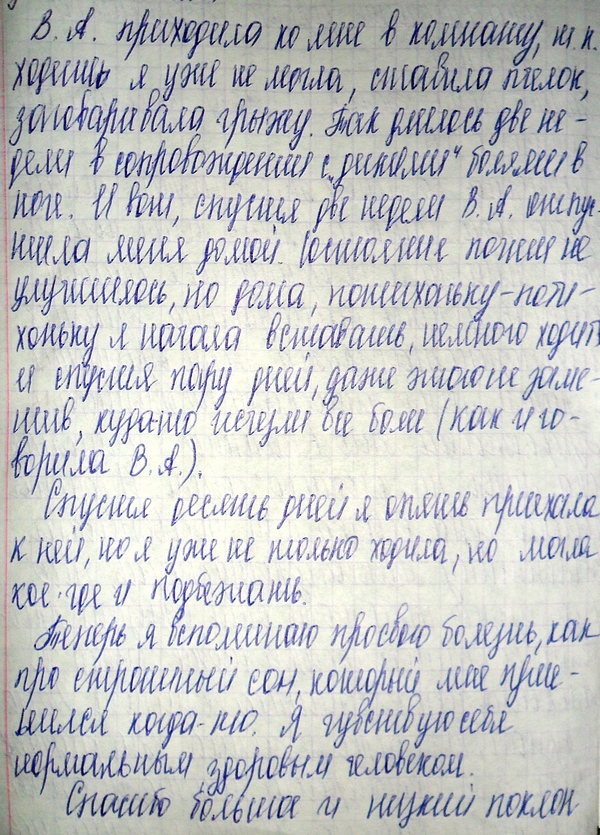 В. А. приходила ко мне в комнату, т.к.
ходить я уже не могла, ставила пчелок,
заговаривала грыжу. Так длилось две не-
дели в сопровождении с „дикими" болями в
ноге. И вот, спустя две недели В. А. отпус-
тила меня домой. Состояние почти не
улучшилось, но дома, потихоньку-поти-
хоньку я начала вставать, немного ходить
и спустя пару дней, даже этого не заме-
тив, кудато исчезли все боли (как и го-
ворила В. А.).
Спустя десять дней я опять приехала
к ней, но я уже не только ходила, но могла
кое-где и подбежать.
Теперь я вспоминаю про свою болезнь, как
про страшный сон, который мне присе-
нился когда-то. Я чувствую себя
нормальным здоровым человеком.
Спасибо большое и низкий поклон